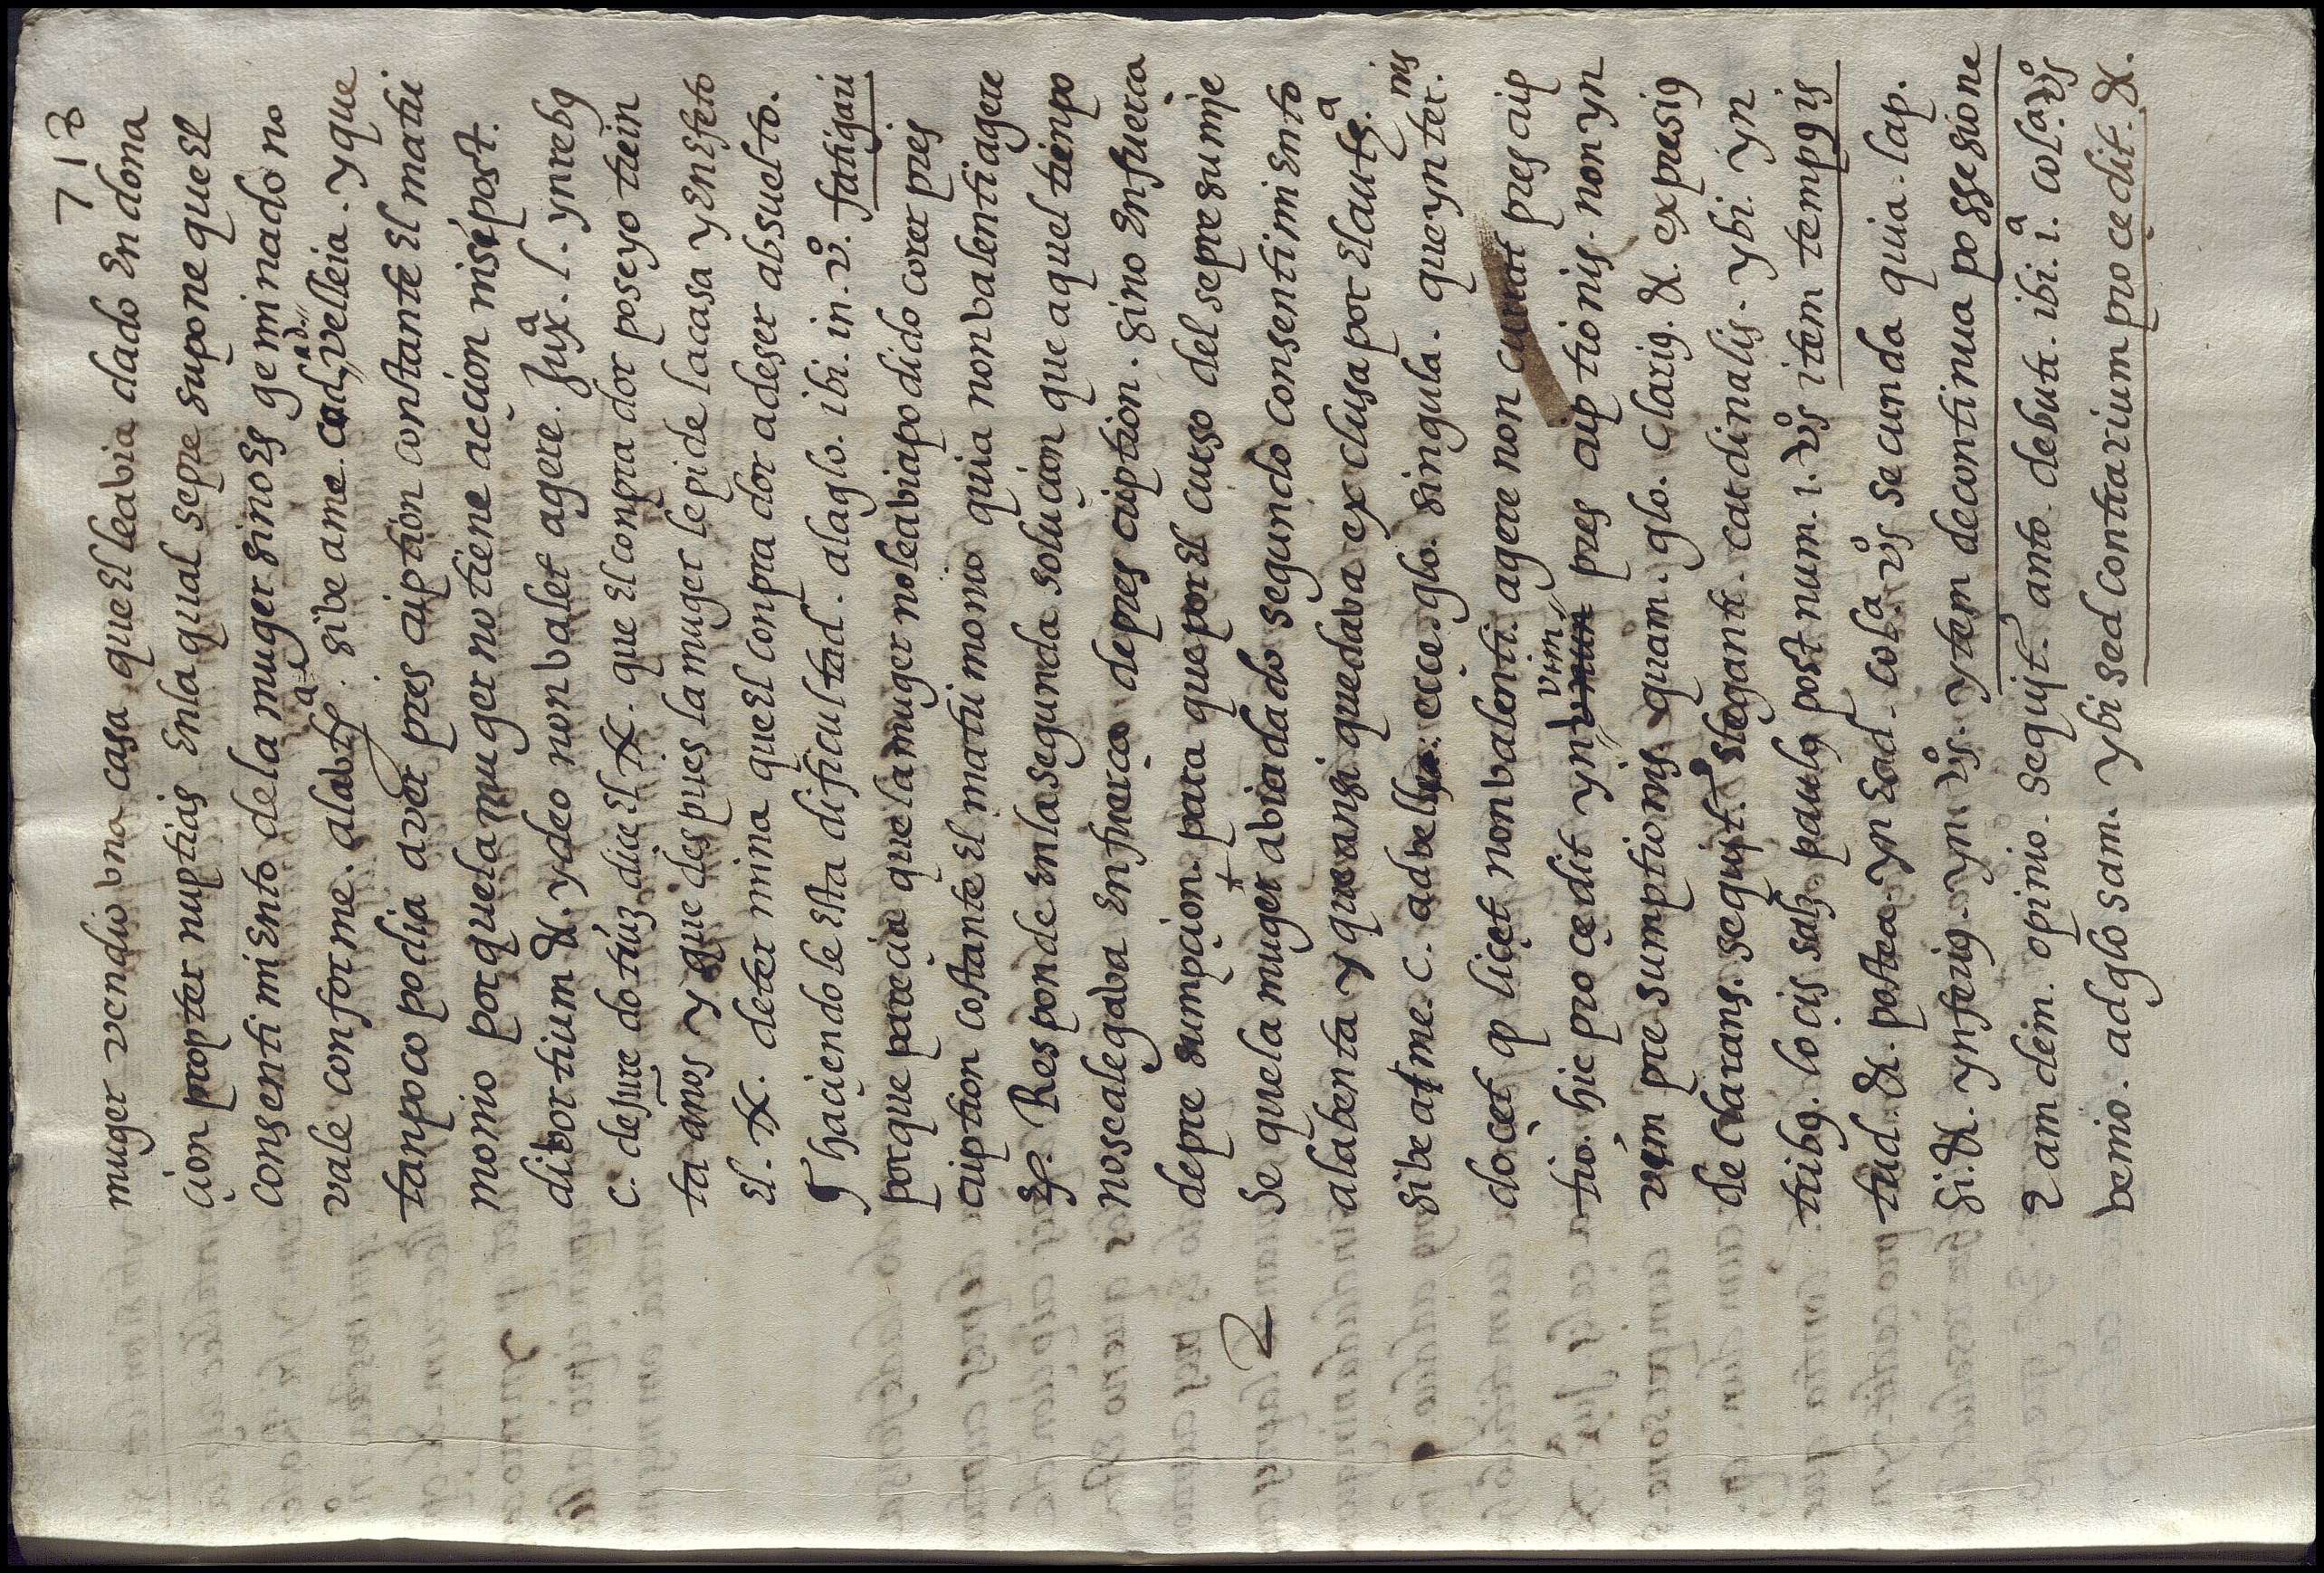 713
muger vendio vna casa que El leabia dado En dona
çion propter nuptias Enla qual sepre supone que El
consenti miEnto dela muger sino Es ge mi nado no
vale conforme. alabtẽ.ª sibe ame. cad, velleia. y que
tanpoco podia aver pres ciption constante El matri
monio porque la muger no tiene acçion nisi post.
dibortium &. ydeo non balet agere. Juxª. l. yn rebꝯ
c. dejure dotiuz dice El tx. que El conpra dor poseyo trein
ta anos y que despues la muger le pide la casa y En Efeto
El. tx. deter mina que El conpra dor a deser absuelto.
¶ haçiendole Esta dificultad. alaglo. ibi. in. vº. fatigari
porque pareçia que la muger nole abia podido corer pres
ciption costante El matri monio quia non balenti agere
&. Responde En la segunda soluçion que aquel tienpo
nose alegaba En fuerça de pres ciption. sino En fuerça
depre sumpçion. para que por El curso del sepre sumje
2 se que la muger abia dado segundo consenti mi Ento
alabenta y que ansi quedaba ex clusa por El autꝭ.ª
sibe a me. c. ad bell : ecce. glo. singula. que yn ter.nis
doçet q liçet non balenti. agere non currat pres cip
tio. hic proçedit yn vnun vim pres cip tionis. non yn
vim pre sumptionis. quam. glo. clariꝯ. &. expresiꝯ
de clarans. sequit. Elegant. cardinalis. ybi. yn
tribꝯ. locis sah. paulꝯ post num. 1. vºs item tempꝯis
tud. &. postea. yn Ead. colª. vºs secunda quia. lap.
si. &. ynferiꝯ. yn. vºs. ytem decontinua possesione
2 am dem. opinio. sequit. anto. debutr. ibi. 1.ª colª. vºs
venio. ad glosam. ybi sed contrarium proçedit. &.